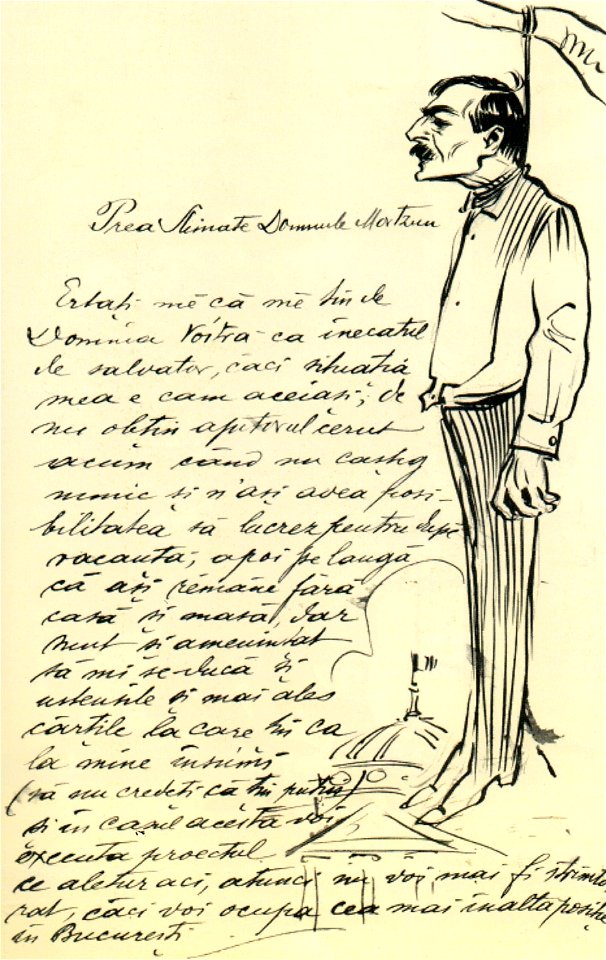 Prea Stimate Domnule Mortzun
Ertați mĕ că mĕ țin de
Dominia Vóstră ca înecatul
de salvator, căci situația
mea e cam aceiași; de
nu obțin ajutorul cerut
acum când nu caștig
nimic și n'ași avea posi-
bilitatea să lucrez pentru după
vacanta; apoi pe langă
că ași rĕmâne fără
casă și masă, dar
sunt și amenințat
să mi se ducă și
ustensile și mai ales
cărțile la care țin ca
la mine însumi
(să nu credeți că țin puțin)
și în cazul acesta voi
executa proectul
ce aletur aci, atunci nu voi mai fi strimto
rat, căci voi ocupa cea mai inalta poziție
in București